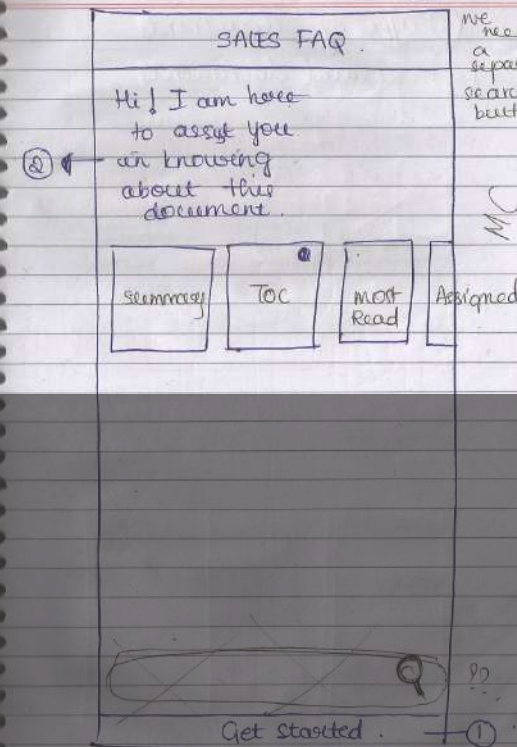 SALES FAQ.
we
nee
a
separ
searc
butt
Hi! I am here
to assist you
in knowing
about this
document.
2
Summary
TOC
most
Read
Assigned
??
Get started.
1